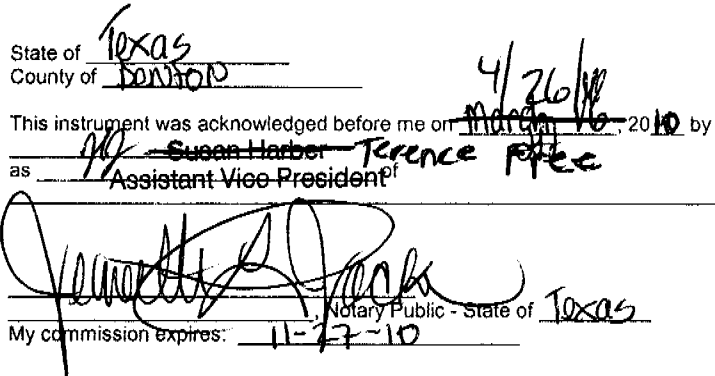 State of Texas
County of DENTON
4/26/10
This instrument was acknowledged before me on March 16, 2010 by
Susan Harber Terence Free
as Assistant Vice President of
, Notary Public - State of Texas
My commission expires: 11-27-10